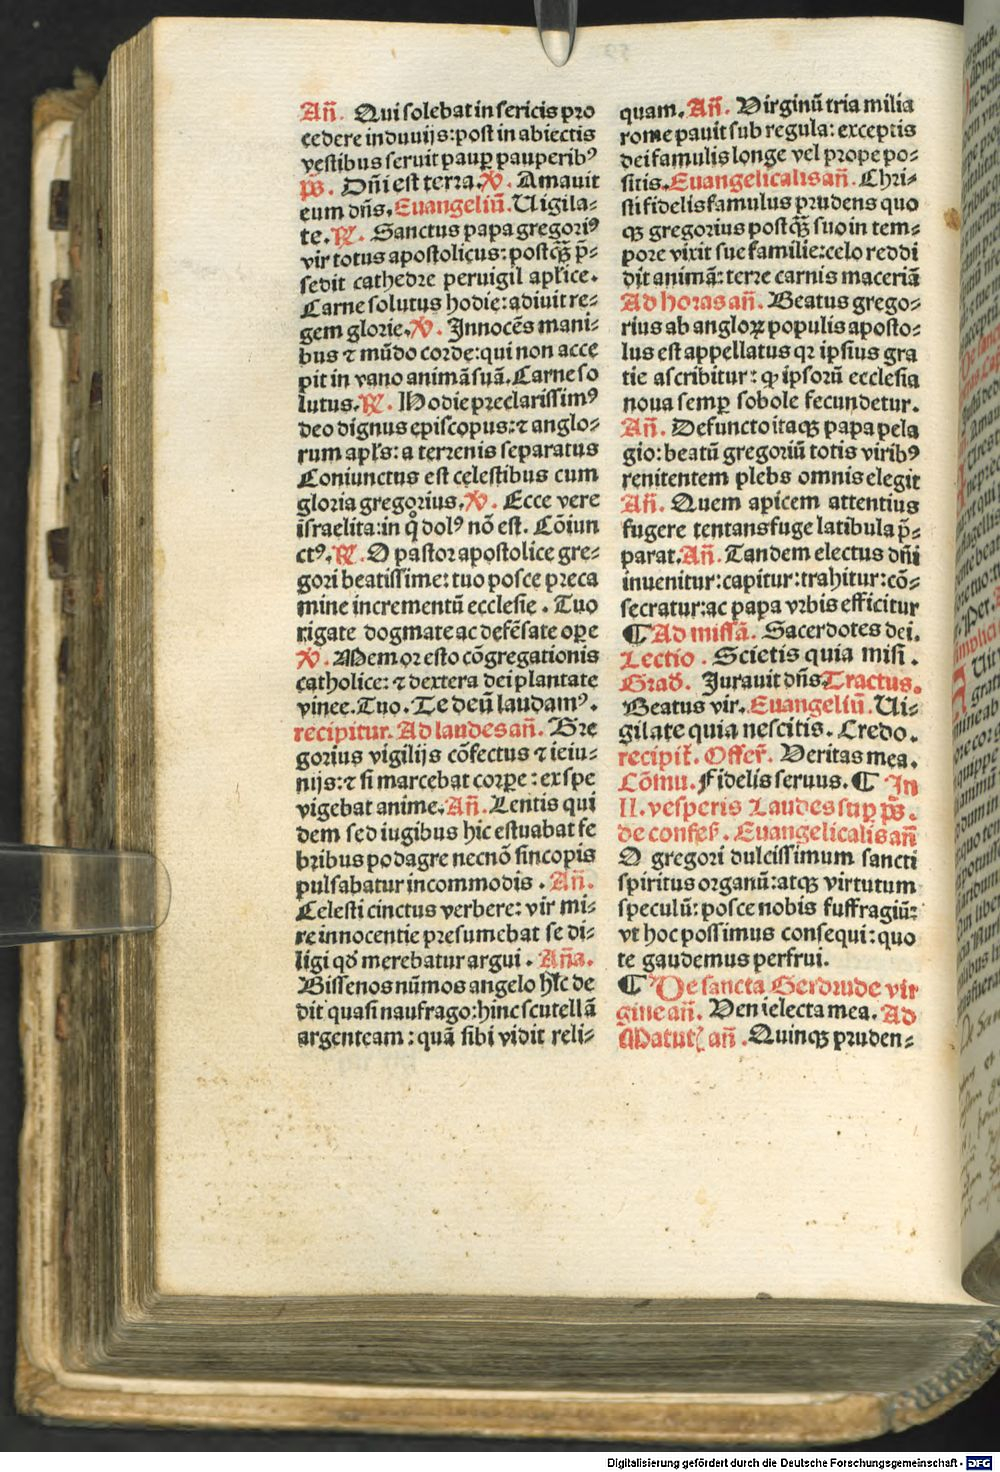 Añ. Qui solebat in sericis pro
cedere induuijs: post in abiectis
vestibus seruit paup̲ pauperibꝰ
p̄s. Dn̄i est terra. V̄. Amauit
eum dn̄s. Euangeliū. Uigila⸗
te. R̄. Sanctus papa gregoriꝰ
vir totus apostolicus: postqꝫ p̄⸗
sedit cathedre peruigil ap̄lice.
Carne solutus hodie: adiuit re⸗
gem glorie. V̄. Innocēs mani⸗
bus ⁊ mūdo corde: qui non acce
pit in vano animā suā. Carne so
lutus. R̄. Hodie preclarissimꝰ
deo dignus episcopus: ⁊ anglo⸗
rum apl̄s: a terrenis separatus
Coniunctus est celestibus cum
gloria gregorius. V̄. Ecce vere
israelita: in q̊ dolꝰ nō est. Cōiun
ctꝰ. R̄. O pastor apostolice gre⸗
gori beatissime: tuo posce preca
mine incrementū ecclesie. Tuo
rigate dogmate ac defēsate ope
V̄. Memor esto cōgregationis
catholice: ⁊ dextera dei plantate
vinee. Tuo. Te deū laudamꝰ.
recipitur. Ad laudes añ. Gre
gorius vigilijs cōfectus ⁊ ieiu⸗
nijs: ⁊ si marcebat corpe: ex spe
vigebat anime. Añ. Lentis qui
dem sed iugibus hic estuabat fe
bribus podagre necnō sincopis
pulsabatur incommodis. Añ.
Celesti cinctus verbere: vir mi⸗
re innocentie presumebat se di⸗
ligi qd̄ merebatur argui. Aña.
Bissenos nūmos angelo hic de
dit quasi naufrago: hinc scutellā
argenteam: quā sibi vidit reli⸗
quam. Añ. Virginū tria milia
rome pauit sub regula: exceptis
dei famulis longe vel prope po⸗
sitis. Euangelicalis añ. Chri⸗
sti fidelis famulus prudens quo
qꝫ gregorius postqꝫ suo in tem⸗
pore vixit sue familie: celo reddi
dit animā: terre carnis maceriā
Ad horas añ. Beatus grego⸗
rius ab angloꝝ populis aposto⸗
lus est appellatus qr ipsius gra
tie ascribitur: ꝙ ipsorū ecclesia
noua semp̲ sobole fecundetur.
Añ. Defuncto itaqꝫ papa pela
gio: beatū gregoriū totis viribꝰ
renitentem plebs omnis elegit
Añ. Quem apicem attentius
fugere tentans fuge latibula p̄⸗
parat. Añ. Tandem electus dn̄i
inuenitur: capitur: trahitur: cō⸗
secratur: ac papa vrbis efficitur
¶ Ad missā. Sacerdotes dei.
Lectio. Scietis quia misi.
Grad. Jurauit dn̄s Tractus.
Beatus vir. Euangeliū. Ui⸗
gilate quia nescitis. Credo.
recipit̄. Offer̄. Veritas mea.
Cōmu. Fidelis seruus. ¶ In
II. vesperis Laudes sup̲ p̄s.
de confes. Euangelicalis añ
O gregori dulcissimum sancti
spiritus organū: atqꝫ virtutum
speculū: posce nobis suffragiū:
vt hoc possimus consequi: quo
te gaudemus perfrui.
¶ De sancta Gerdrude vir
gine añ. Veni electa mea. Ad
Matut̄ añ. Quinqꝫ pruden⸗
Digitalisierung gefördert durch die Deutsche Forschungsgemeinschaft - DFG